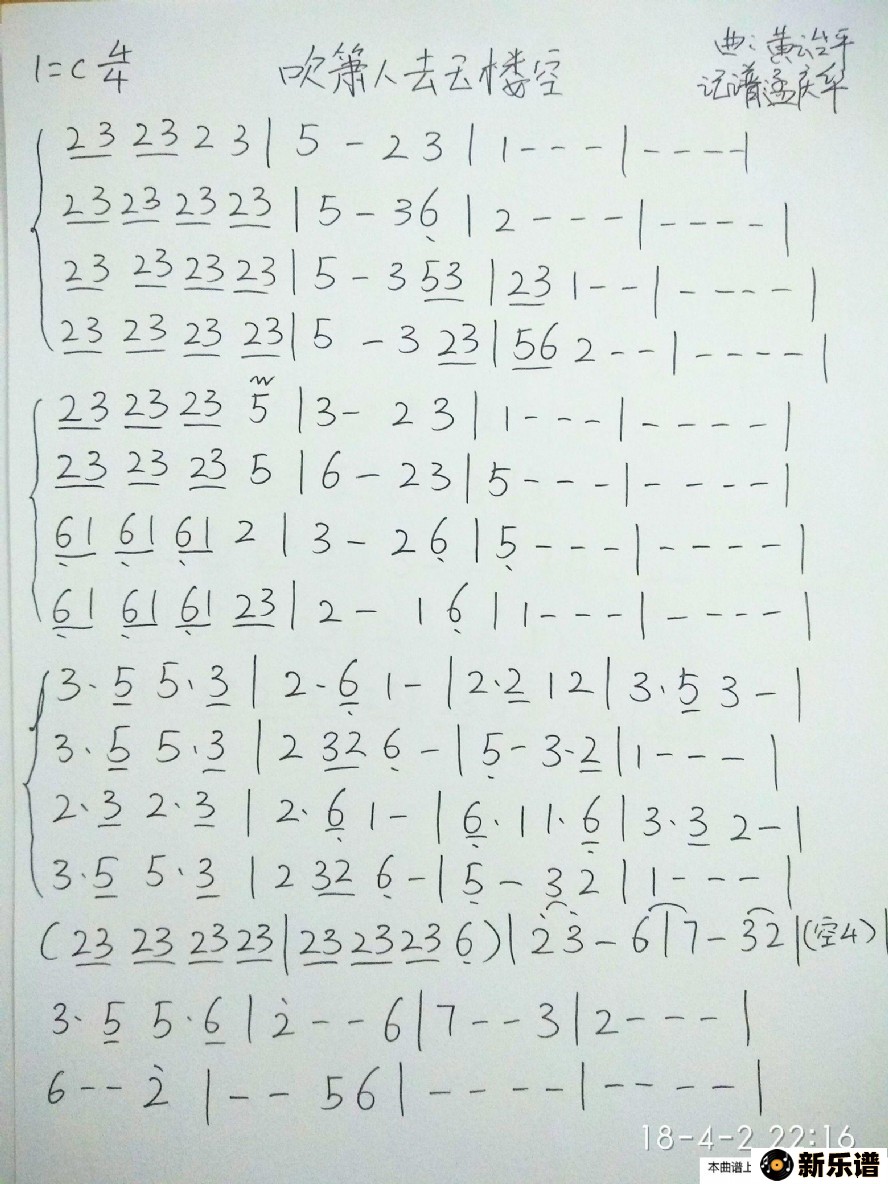 1=C 4/4 吹箫人去玉楼空 曲:黄诒平
记谱孟庆华
23 23 2 3 | 5 - 2 3 | 1 - - - | - - - - |
23 23 23 23 | 5 - 3 6̣ | 2 - - - | - - - - |
23 23 23 23 | 5 - 3 53 | 23 1 - - | - - - - |
23 23 23 23 | 5 - 3 23 | 56 2 - - | - - - - |
23 23 23 5 | 3 - 2 3 | 1 - - - | - - - - |
23 23 23 5 | 6 - 2 3 | 5 - - - | - - - - |
6̣1 6̣1 6̣1 2 | 3 - 2 6̣ | 5̣ - - - | - - - - |
6̣1 6̣1 6̣1 23 | 2 - 1 6̣ | 1 - - - | - - - - |
3· 5 5· 3 | 2· 6̣ 1 - | 2· 2 1 2 | 3· 5 3 - |
3· 5 5· 3 | 2 32 6̣ - | 5̣ - 3· 2 | 1 - - - |
2· 3 2· 3 | 2· 6̣ 1 - | 6̣· 1 1· 6̣ | 3· 3 2 - |
3· 5 5· 3 | 2 32 6̣ - | 5̣ - 3 2 | 1 - - - |
(23 23 23 23 | 23 23 23 6̣) | 2̇ 3̇ - 6 | 7 - 3 2 | (空4) |
3· 5 5· 6 | 2̇ - - 6 | 7 - - 3 | 2 - - - |
6 - - 2̇ | - - 5 6 | - - - - | - - - - |
18-4-2 22:16
本曲谱上 新乐谱